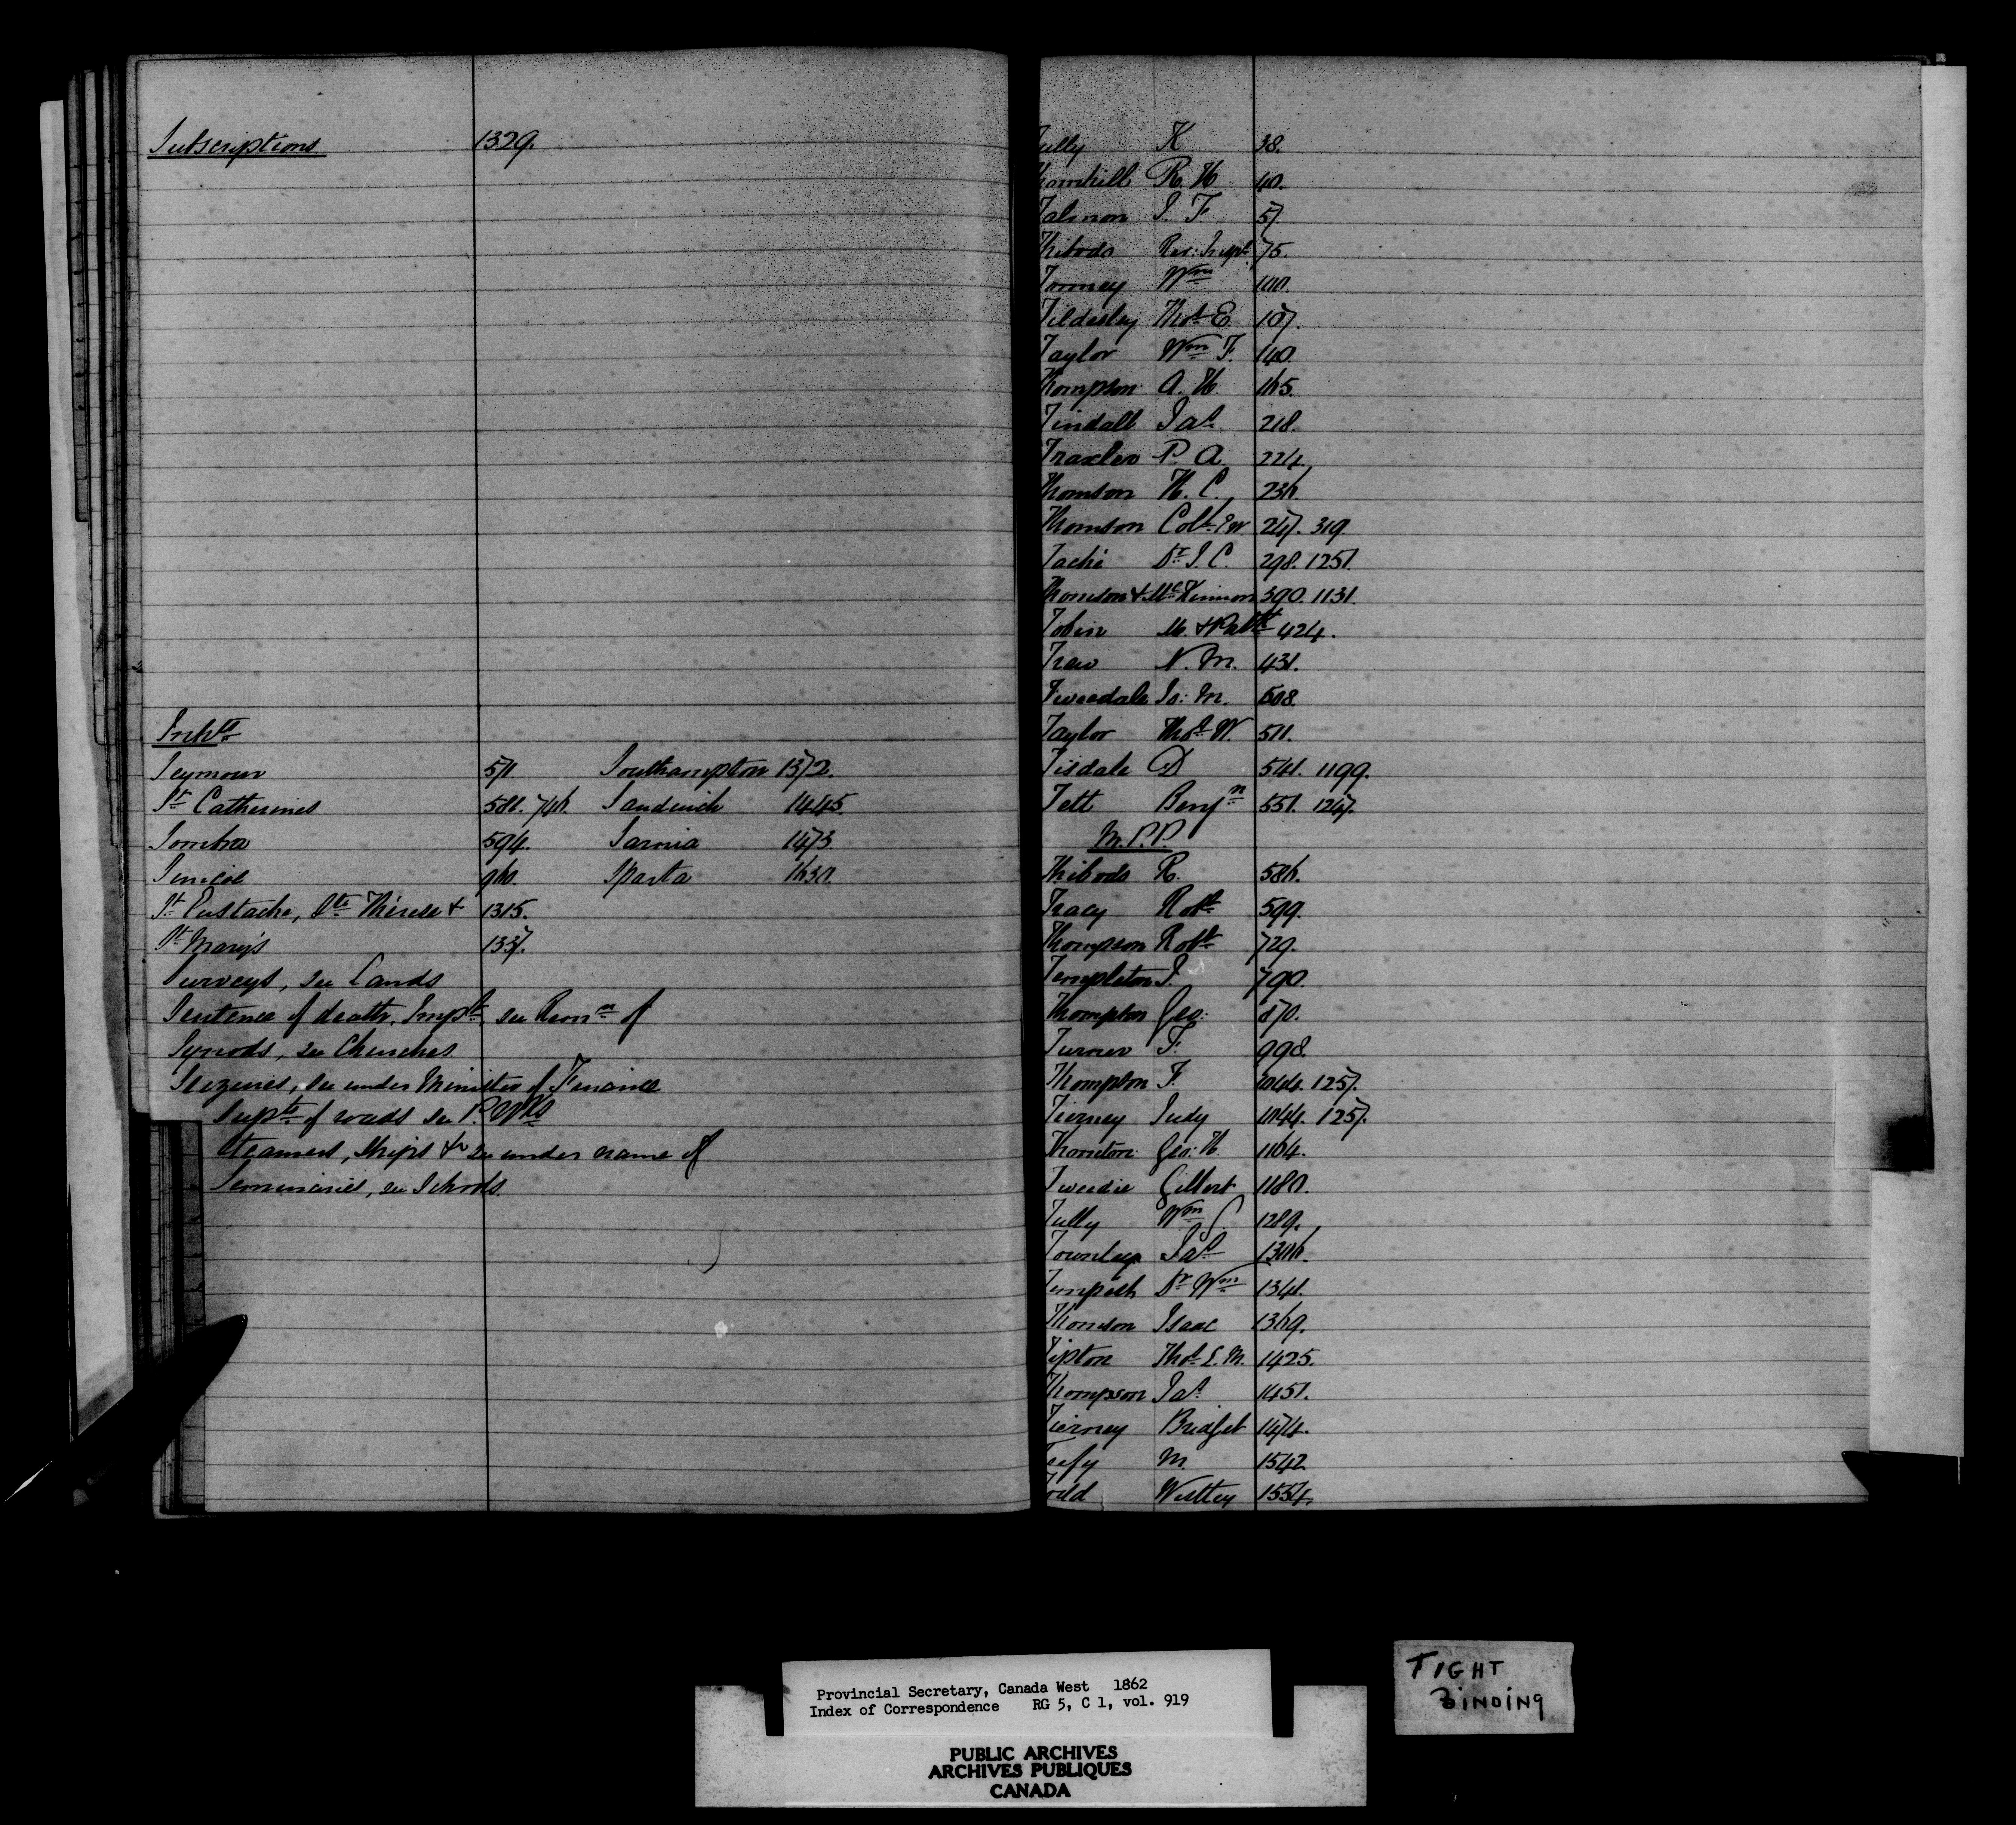 Subscriptions 1329.
Inhts
Seymour 511 Southampton 1372.
St Catherines 581. 746. Sandwich 1445.
Sombra 594. Sarnia 1473.
Simcoe 960. Sparta 1630.
St Eustache, Ste Thérèse & 1315.
St Mary's 1337.
Surveys, see Lands
Sentence of death, Impt, see Remn of
Synods, see Churches
Seizures, see under Minister of Finance
Supts of roads see P. Wks
Steamers, Ships & see under name of
Seminaries, see Schools.
Tully K 38.
Thornhill R. H. 40.
Talmon J. F. 57.
Thibodo Rev: Insp 75.
Tormey Wm 100.
Tildesley Thos E. 107.
Taylor Wm F. 140.
Thompson A. H. 165.
Tindall Jas 218.
Traxler P. A. 224.
Thomson H. C. 236.
Thomson Coll. E W 247. 319.
Taché Dr J. C. 298. 1251.
Thomson & McKinnon 390. 1131.
Tobin M. & Patk 424.
Trew N. M. 431.
Tweedale Jo: M. 508.
Taylor Thos W. 511.
Tisdale D 541. 1199.
Tett Benjn 551. 1247.
M.P.P.
Thibodo R. 586.
Tracy Robt 599.
Thompson Robt 729.
Templeton J. 790.
Thompson Geo: 870.
Turner F. 998.
Thompson F. 1044. 1257.
Tierney Judy 1044. 1257.
Thornton Geo: H. 1164.
Tweedie Gilbert 1180.
Tully Wm 1289.
Townley Jas 1306.
Tempest Dr Wm 1341.
Thomson Isaac 1369.
Tipton Thos L. M. 1425.
Thompson Jas 1451.
Tierney Bridget 1474.
Teefy M 1542
Todd 1554.
Provincial Secretary, Canada West 1862
Index of Correspondence RG 5, C 1, vol. 919
PUBLIC ARCHIVES
ARCHIVES PUBLIQUES
CANADA
TIGHT
BINDING